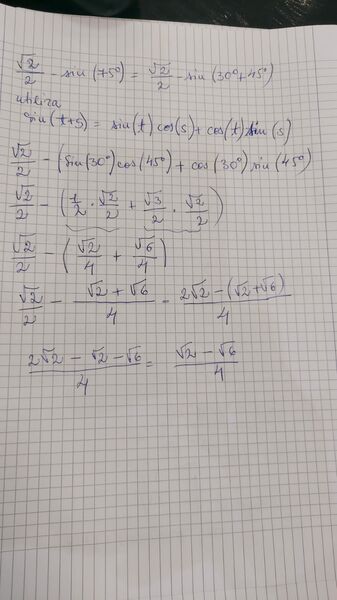 √2/2 - sin (75°) = √2/2 - sin (30°+45°)
utiliza
sin(t+s) = sin(t) cos(s) + cos(t) sin (s)
√2/2 - (sin(30°) cos(45°) + cos(30°) sin(45°)
√2/2 - (1/2 · √2/2 + √3/2 · √2/2)
√2/2 - (√2/4 + √6/4)
√2/2 - (√2 + √6)/4 = (2√2 - (√2+√6))/4
(2√2 - √2 - √6)/4 = (√2 - √6)/4